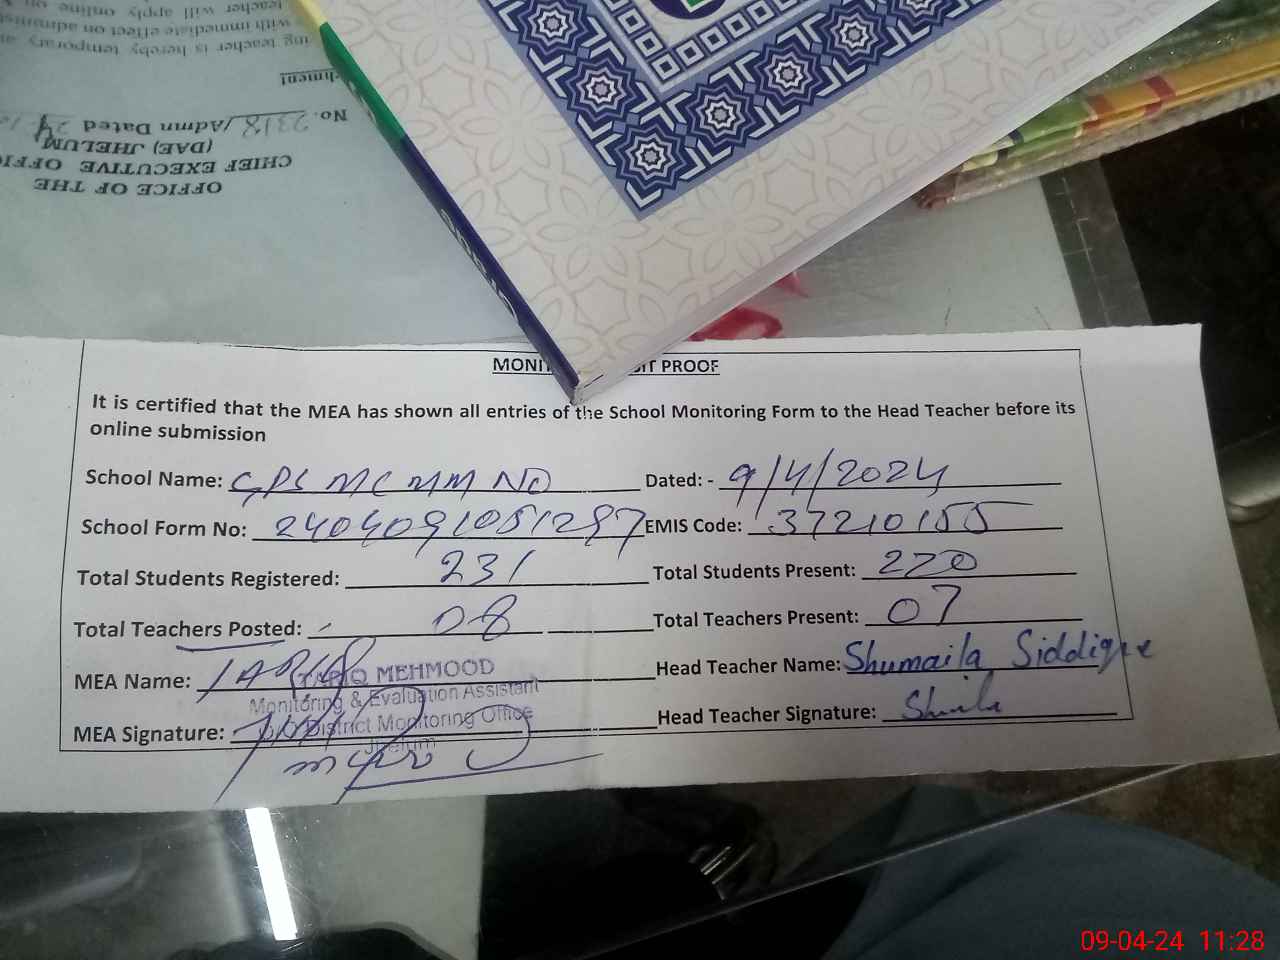 teacher will apply online
with immediate effect on
ing teacher is hereby temporary
No. 2318/Admn Dated
(DAE) JHELUM
CHIEF EXECUTIVE
OFFICE OF THE
PROOF
It is certified that the MEA has shown all entries of the School Monitoring Form to the Head Teacher before its
online submission
School Name: GPS MC MM NO Dated: - 9/4/2024
School Form No: EMIS Code: 37210155
Total Students Registered: 231 Total Students Present: 220
Total Teachers Posted: 08 Total Teachers Present: 07
MEA Name: TARIQ MEHMOOD Head Teacher Name: Shumaila Siddique
Monitoring & Evaluation Assistant
MEA Signature: District Monitoring Office Head Teacher Signature:
Jhelum
09-04-24 11:28